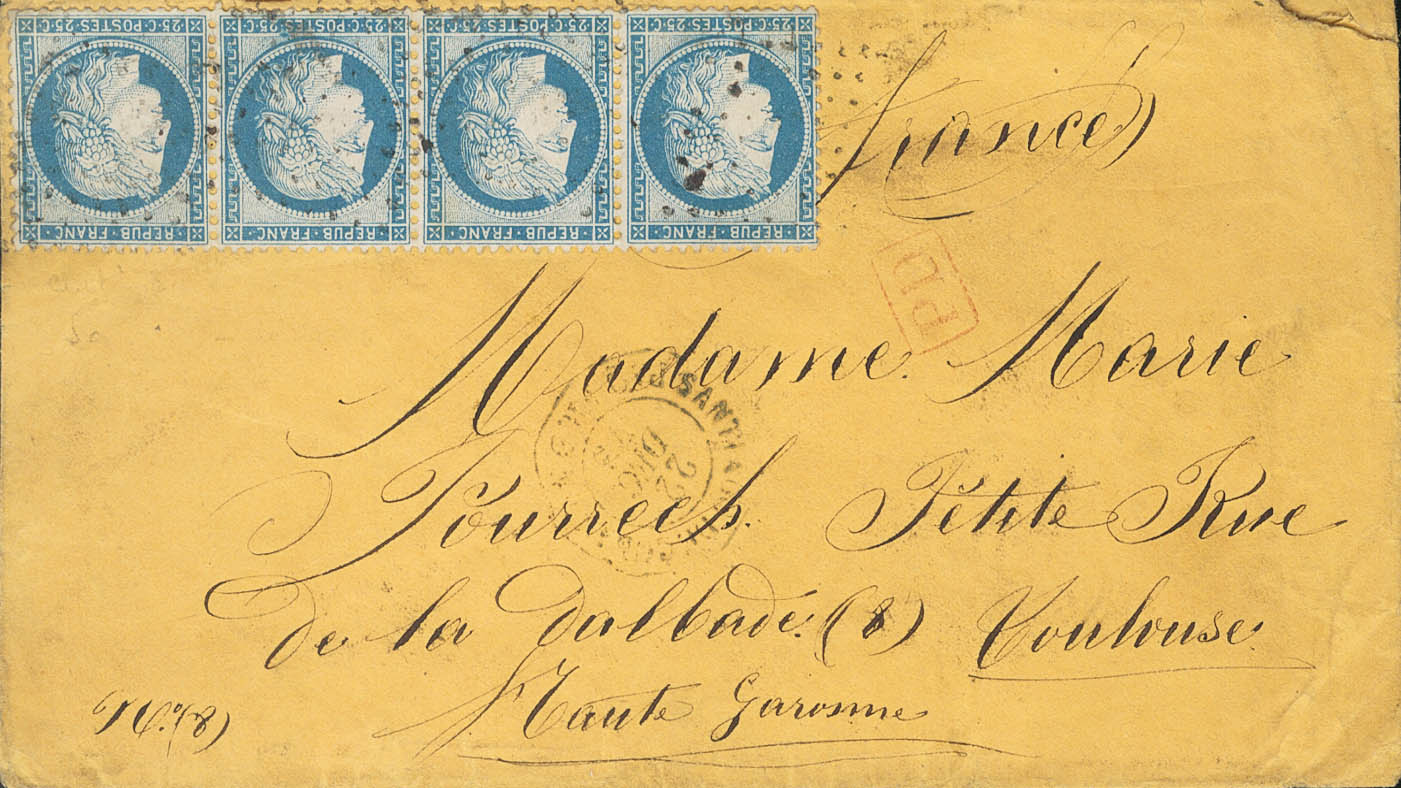 25·C·POSTES·25·C· 25·C·POSTES·25·C· 25·C·POSTES·25·C· 25·C·POSTES·25·C·
REPUB·FRANC· REPUB·FRANC· REPUB·FRANC· REPUB·FRANC·
(France)
PD
Madame Marie
22 DEC.
Pourrech. Pétite Rue
de la Dalbade. (8) Toulouse
Haute Garonne
No. (8)